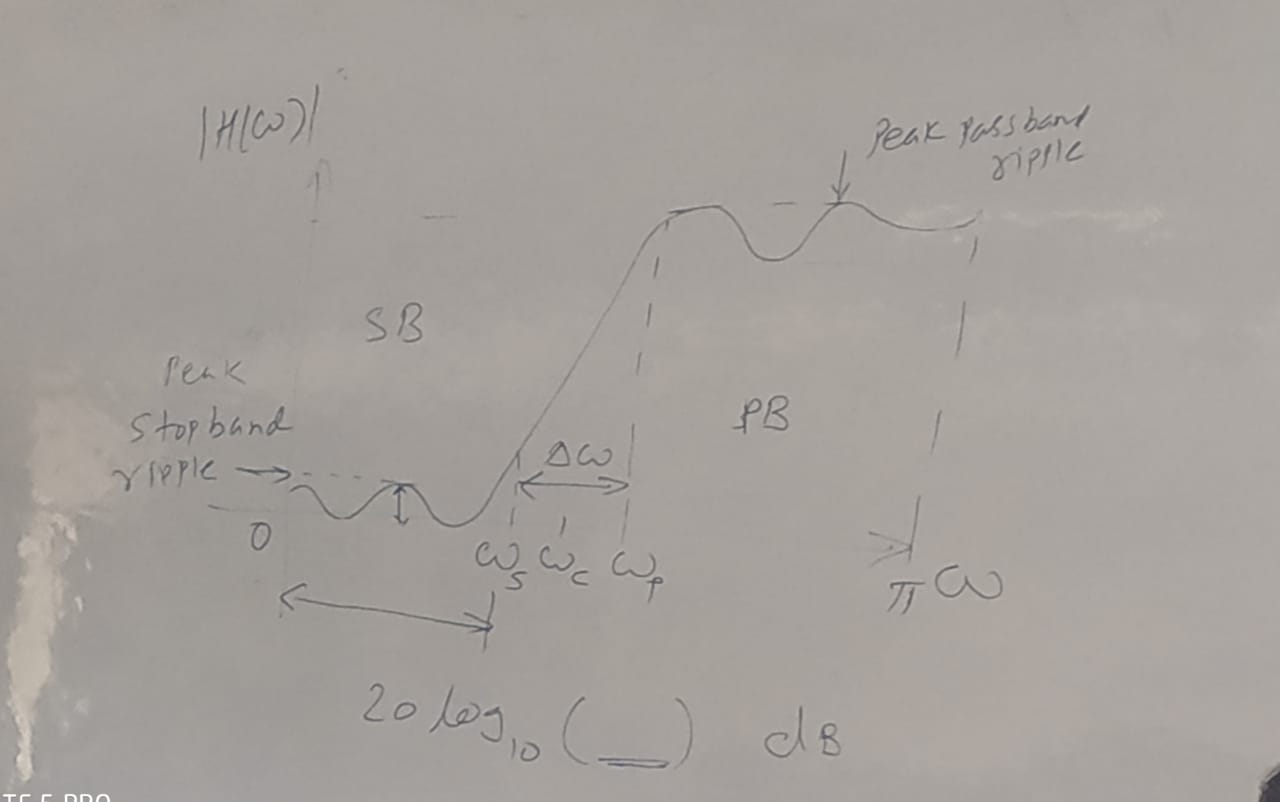 |H(ω)|
Peak Passband
ripple
SB
Peak
Stopband
ripple
PB
Δω
0
ωs ωc ωp
π ω
20 log10 (__) dB